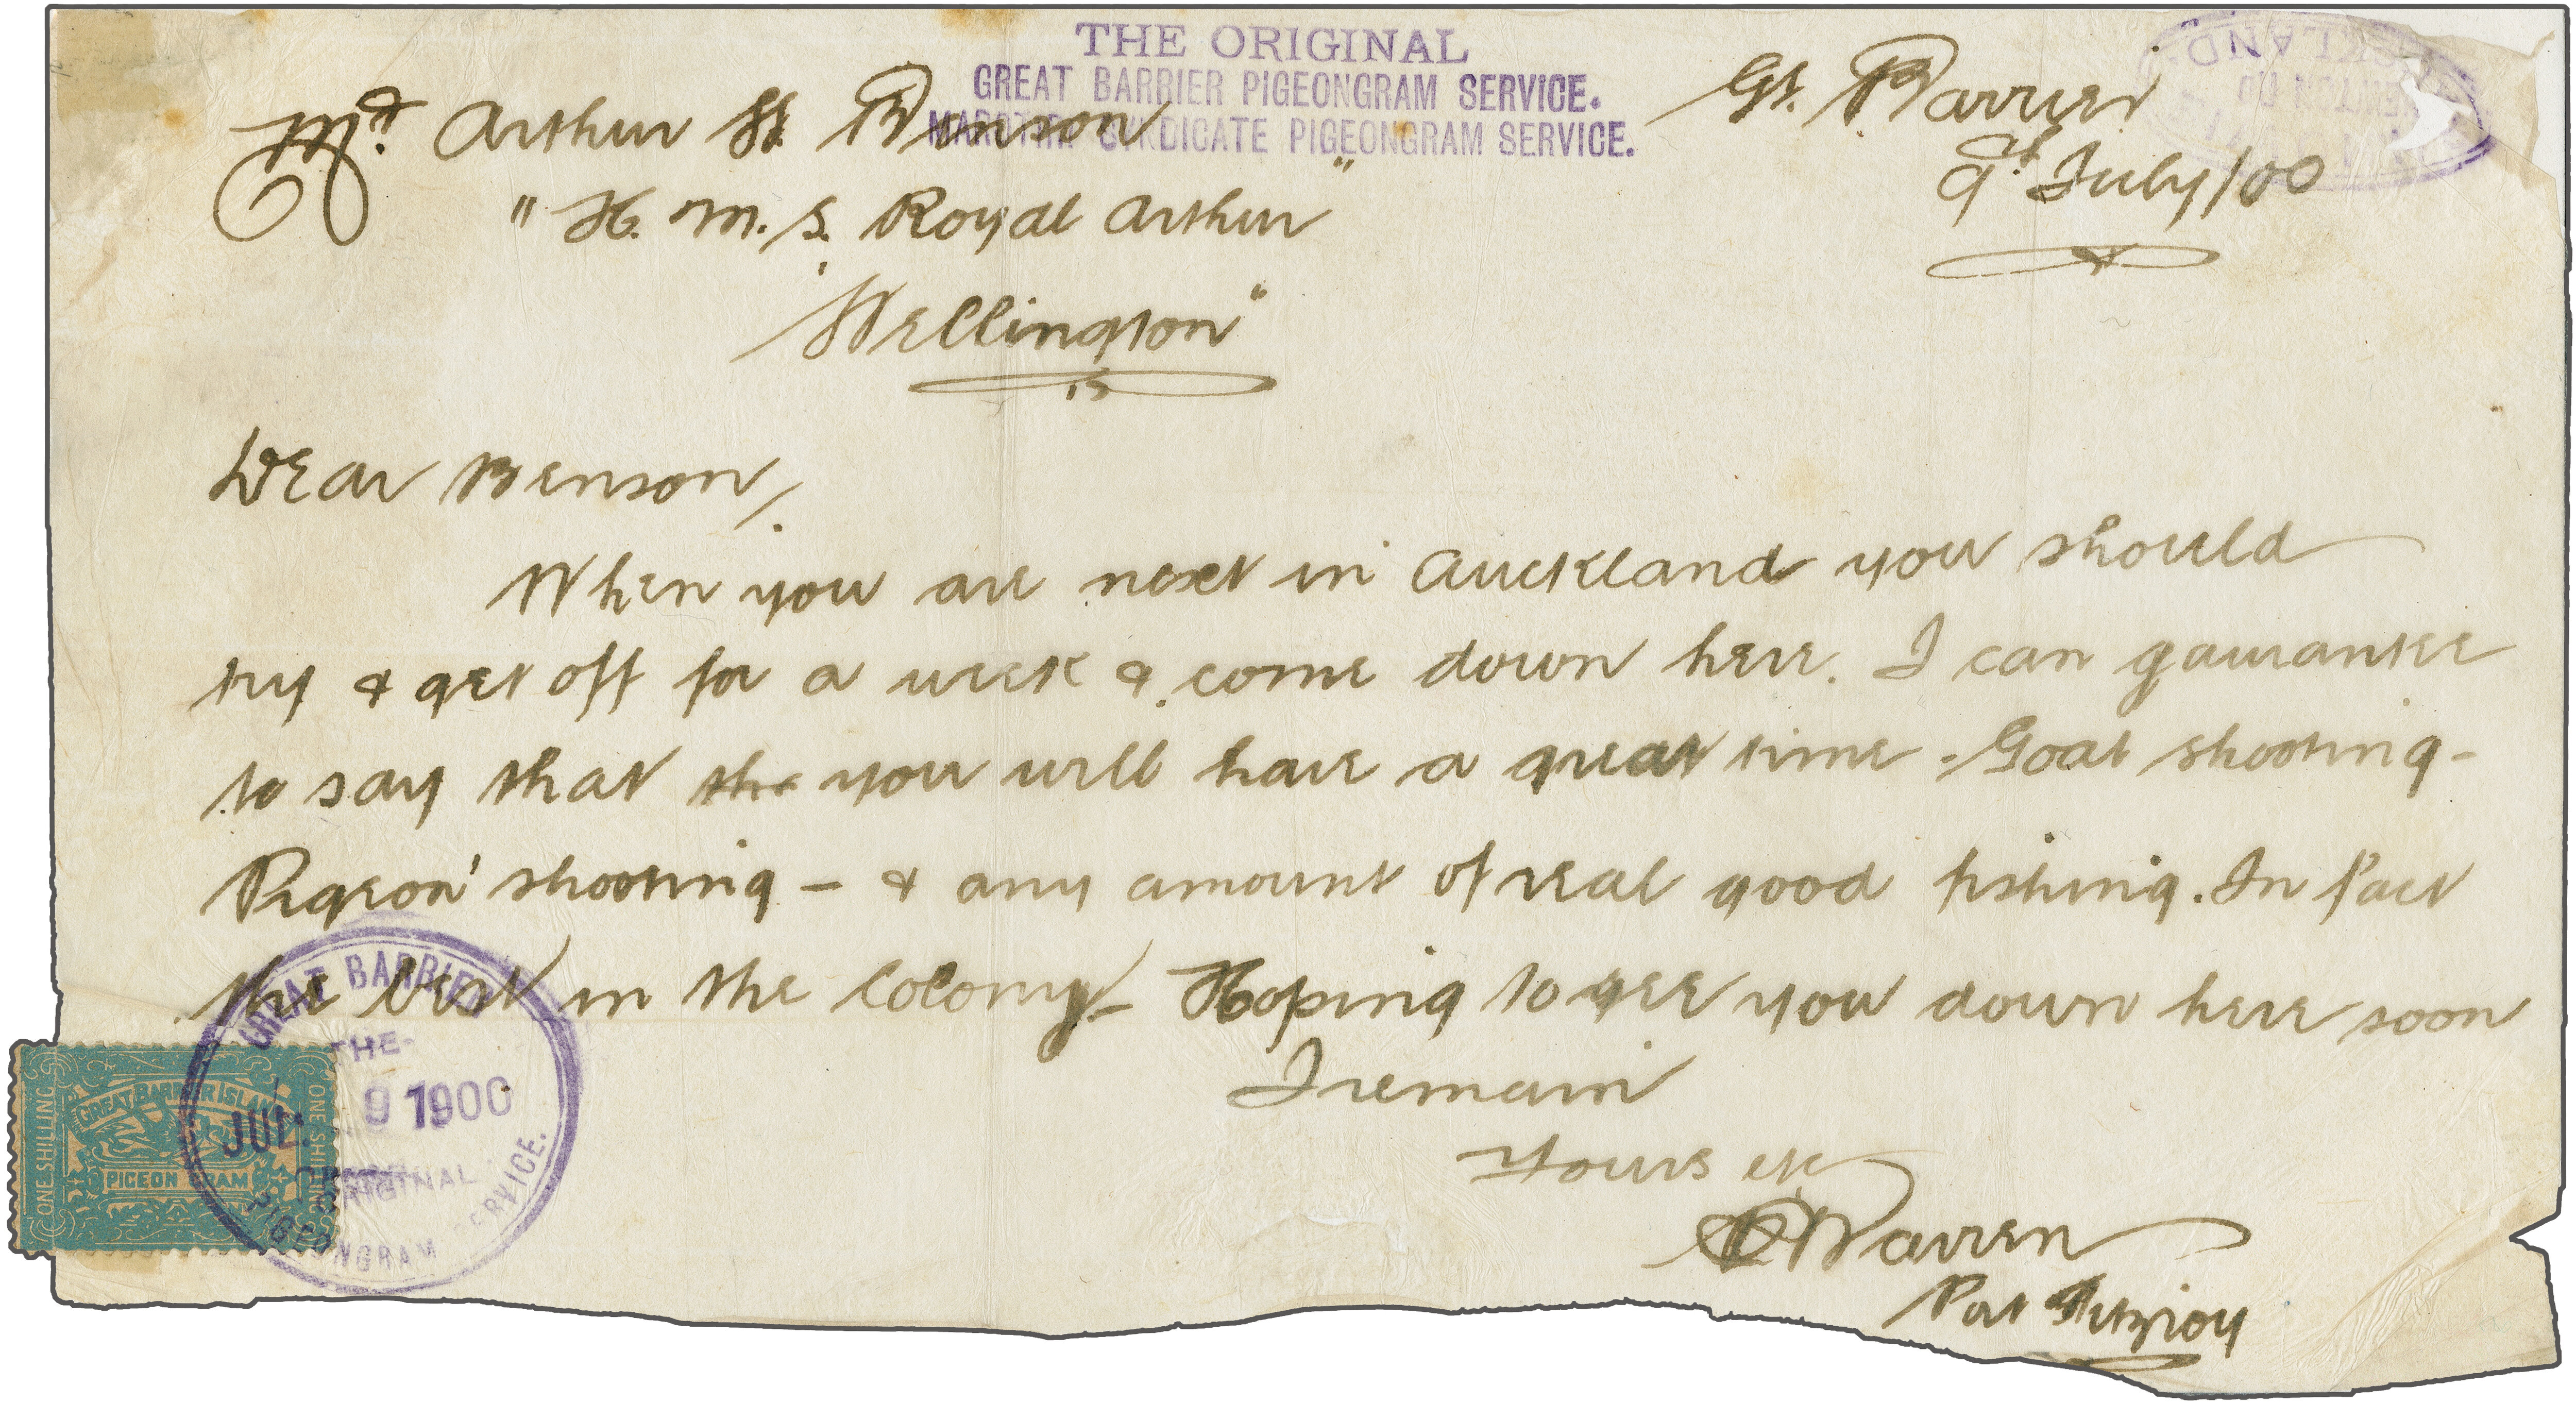 THE ORIGINAL
GREAT BARRIER PIGEONGRAM SERVICE.
MAROTIRI SYNDICATE PIGEONGRAM SERVICE.
Gt. Barrier
9th July/00
Mr. Arthur H. Benson
"H. M. S. Royal Arthur"
"Wellington"
Dear Benson,
When you are next in Auckland you should
try & get off for a week & come down here. I can gaurantee
to say that the you will have a great time - Goat shooting -
Pigeon shooting - & any amount of real good fishing. In fact
the best in the Colony - Hoping to see you down here soon
I remain
Yours etc
Warren
Port Fitzroy
GREAT BARRIER
THE
JUL 9 1900
ORIGINAL
PIGEONGRAM SERVICE.
ONE SHILLING
GREAT BARRIER ISLAND
PIGEON GRAM
ONE SHILLING
CKLAND.